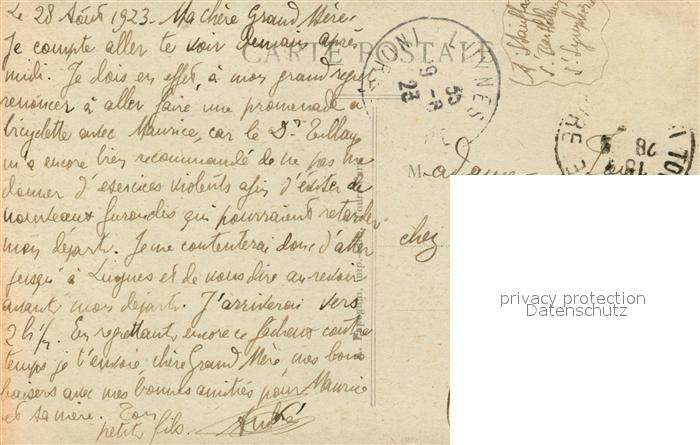 Le 28 Août 1923 - Ma chère Grand'Mère -
Je compte aller te voir demain après
midi. Je dois en effet à mon grand regret
renoncer à aller faire une promenade à
bicyclette avec Maurice, car le Dr
m'a encore bien recommandé de ne pas me
donner d'exercices violents afin d'éviter de
nouveaux furoncles qui pourraient retarder
mon départ. Je me contenterai donc d'aller
jusqu'à Luynes et de vous dire au revoir
avant mon départ. J'arriverai vers
2h½. En regrettant encore ce fâcheux contre
temps je t'envoie, chère Grand'Mère mes bons
baisers avec mes bonnes amitiés pour Maurice
et sa mère. Ton
petit fils. André
CARTE POSTALE
LUYNES
9-8
23
Madame
chez
28
privacy protection
Datenschutz